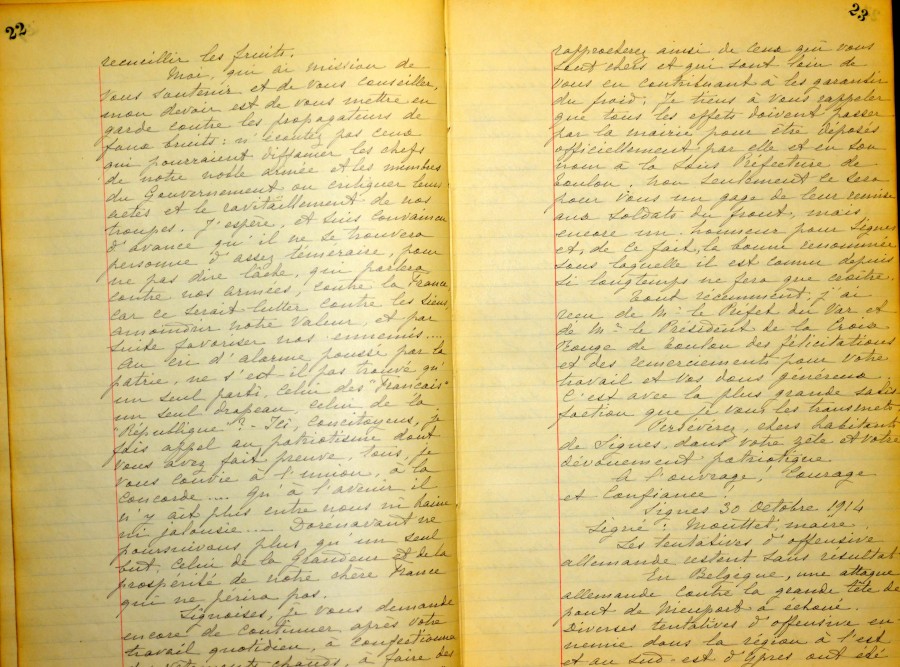 22
recueillir les fruits.
Moi, qui ai mission de
vous soutenir et de vous conseiller,
mon devoir est de vous mettre en
garde contre les propagateurs de
faux bruits: n'écoutez pas ceux
qui pourraient diffamer les chefs
de notre noble armée et les membres
du Gouvernement ou critiquer leurs
actes et le ravitaillement de nos
troupes. J'espère, et suis convaincu
d'avance qu'il ne se trouvera
personne d'assez téméraire, pour
ne pas dire lâche, qui parlera
contre nos armées, contre la France,
car ce serait lutter contre les siens,
amoindrir notre valeur, et par
suite favoriser nos ennemis....
Au cri d'alarme poussé par la
patrie, ne s'est il pas trouvé qu'
un seul parti, celui des "Français"
un seul drapeau, celui de "la
République"? - Ici, concitoyens, je
fais appel au patriotisme dont
vous avez fait preuve, tous, je
vous convie à l'union, à la
concorde.... Qu'à l'avenir il
n'y ait plus entre nous ni haine
ni jalousie.... Dorénavant ne
poursuivons plus qu'un seul
but, celui de la Grandeur et de la
prospérité de notre chère France
qui ne périra pas.
Signoises, je vous demande
encore de continuer après votre
travail quotidien, à confectionner
des vêtements chauds, à faire des
23
rapprocherez ainsi de ceux qui vous
sont chers et qui sont loin de
vous en contribuant à les garantir
du froid; Je tiens à vous rappeler
que tous les effets doivent passer
par la mairie pour être déposés
officiellement par elle et en son
nom à la Sous Préfecture de
Toulon. Non seulement ce sera
pour vous un gage de leur remise
aux soldats du front, mais
encore un honneur pour Signes
et, de ce fait, le bonne renommée
sous laquelle il est connu depuis
si longtemps ne fera que croître.
Tout récemment, j'ai
reçu de Mr le Préfet du Var et
de Mr le Président de la Croix
Rouge de Toulon des félicitations
et des remerciements pour votre
travail et vos dons généreux.
C'est avec la plus grande satis-
faction que je vous les transmets.
Perséverez, chers habitants
de Signes, dans votre zèle et votre
dévouement patriotique.
A l'ouvrage! Courage
et Confiance!
Signes 30 Octobre 1914
Signé: Mouttet, maire.
Les tentatives d'offensive
allemande restent sans résultat
En Belgique, une attaque
allemande contre la grande tête de
pont de Nieuport à échoué.
Diverses tentatives d'offensive en-
nemie dans la région à l'est
et au sud-est d'Ypres ont été